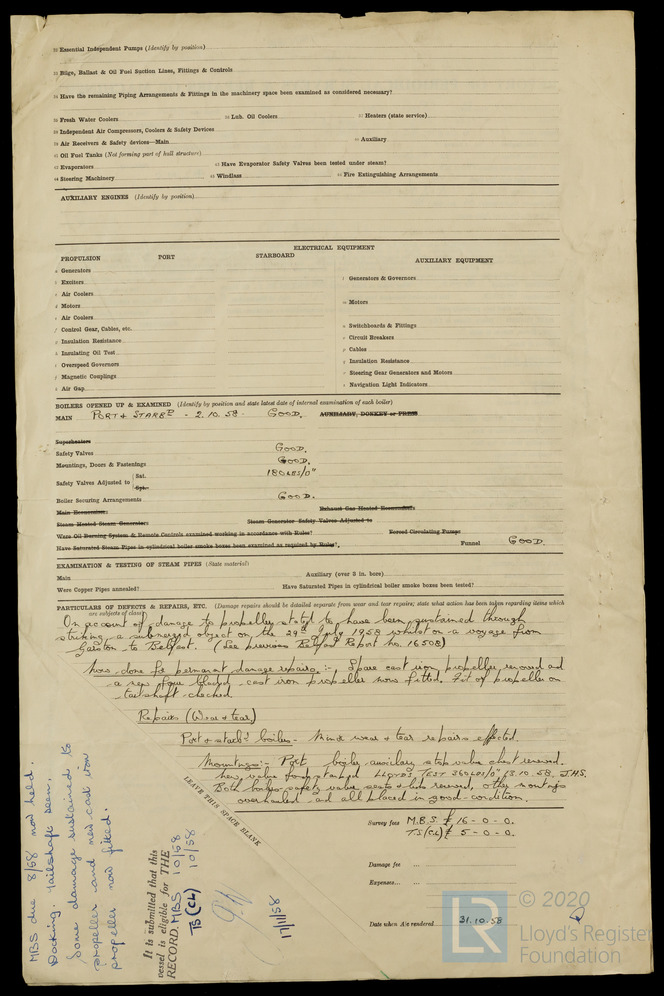 32 Essential Independent Pumps (Identify by position)
33 Bilge, Ballast & Oil Fuel Suction Lines, Fittings & Controls
34 Have the remaining Piping Arrangements & Fittings in the machinery space been examined as considered necessary?
35 Fresh Water Coolers 36 Lub. Oil Coolers 37 Heaters (state service)
38 Independent Air Compressors, Coolers & Safety Devices
39 Air Receivers & Safety devices—Main 40 Auxiliary
41 Oil Fuel Tanks (Not forming part of hull structure)
42 Evaporators 43 Have Evaporator Safety Valves been tested under steam?
44 Steering Machinery 45 Windlass 46 Fire Extinguishing Arrangements
AUXILIARY ENGINES (Identify by position)
ELECTRICAL EQUIPMENT
PROPULSION PORT STARBOARD AUXILIARY EQUIPMENT
a Generators
b Exciters
c Air Coolers
d Motors
e Air Coolers
f Control Gear, Cables, etc.
g Insulation Resistance
h Insulating Oil Test
i Overspeed Governors
j Magnetic Couplings
k Air Gap
l Generators & Governors
m Motors
n Switchboards & Fittings
o Circuit Breakers
p Cables
q Insulation Resistance
r Steering Gear Generators and Motors
s Navigation Light Indicators
BOILERS OPENED UP & EXAMINED (Identify by position and state latest date of internal examination of each boiler)
MAIN PORT & STARBD - 2.10.58 - GOOD. AUXILIARY, DONKEY or PRESS
Superheaters
Safety Valves GOOD.
Mountings, Doors & Fastenings GOOD.
Safety Valves Adjusted to Sat. 180 LBS/□"
Spt.
Boiler Securing Arrangements GOOD.
Main Economisers Exhaust Gas Heated Economisers
Steam Heated Steam Generators Steam Generator Safety Valves Adjusted to
Were Oil Burning System & Remote Controls examined working in accordance with Rules? Forced Circulating Pumps
Have Saturated Steam Pipes in cylindrical boiler smoke boxes been examined as required by Rules? Funnel GOOD.
EXAMINATION & TESTING OF STEAM PIPES (State material)
Main Auxiliary (over 3 in. bore)
Were Copper Pipes annealed? Have Saturated Pipes in cylindrical boiler smoke boxes been tested?
PARTICULARS OF DEFECTS & REPAIRS, ETC. (Damage repairs should be detailed separate from wear and tear repairs; state what action has been taken regarding items which
are subjects of class)
On account of damage to propeller, stated to have been sustained through
striking a submerged object on the 29th July 1958 whilst on a voyage from
Garston to Belfast. (See previous Belfast Report No. 16508)
Now done for permanent damage repairs :- Spare cast iron propeller removed and
a new four bladed cast iron propeller now fitted. Fit of propeller on
tailshaft checked.
Repairs (Wear & tear)
Port & starbd boilers - Minor wear & tear repairs effected.
Mountings :- Port boiler auxiliary stop valve chest renewed.
New valve found stamped LLOYD'S TEST 360 LBS/□" 13.10.58. J.H.S.
Both boilers safety valve seats & lids renewed, other mountings
overhauled and all placed in good condition.
LEAVE THIS SPACE BLANK
Survey fees M.B.S. £ 16 - 0 - 0.
TS (CL) £ 5 - 0 - 0.
Damage fee
Expenses
Date when A/c rendered 31.10.58
MBS due 8/58 now held.
Docking. Tailshaft seen.
Some damage sustained to
propeller and new cast iron
propeller now fitted.
It is submitted that this
vessel is eligible for THE
RECORD. MBS 10/58
TS (CL) 10/58
17/11/58
© 2020
LR
Lloyd's Register
Foundation